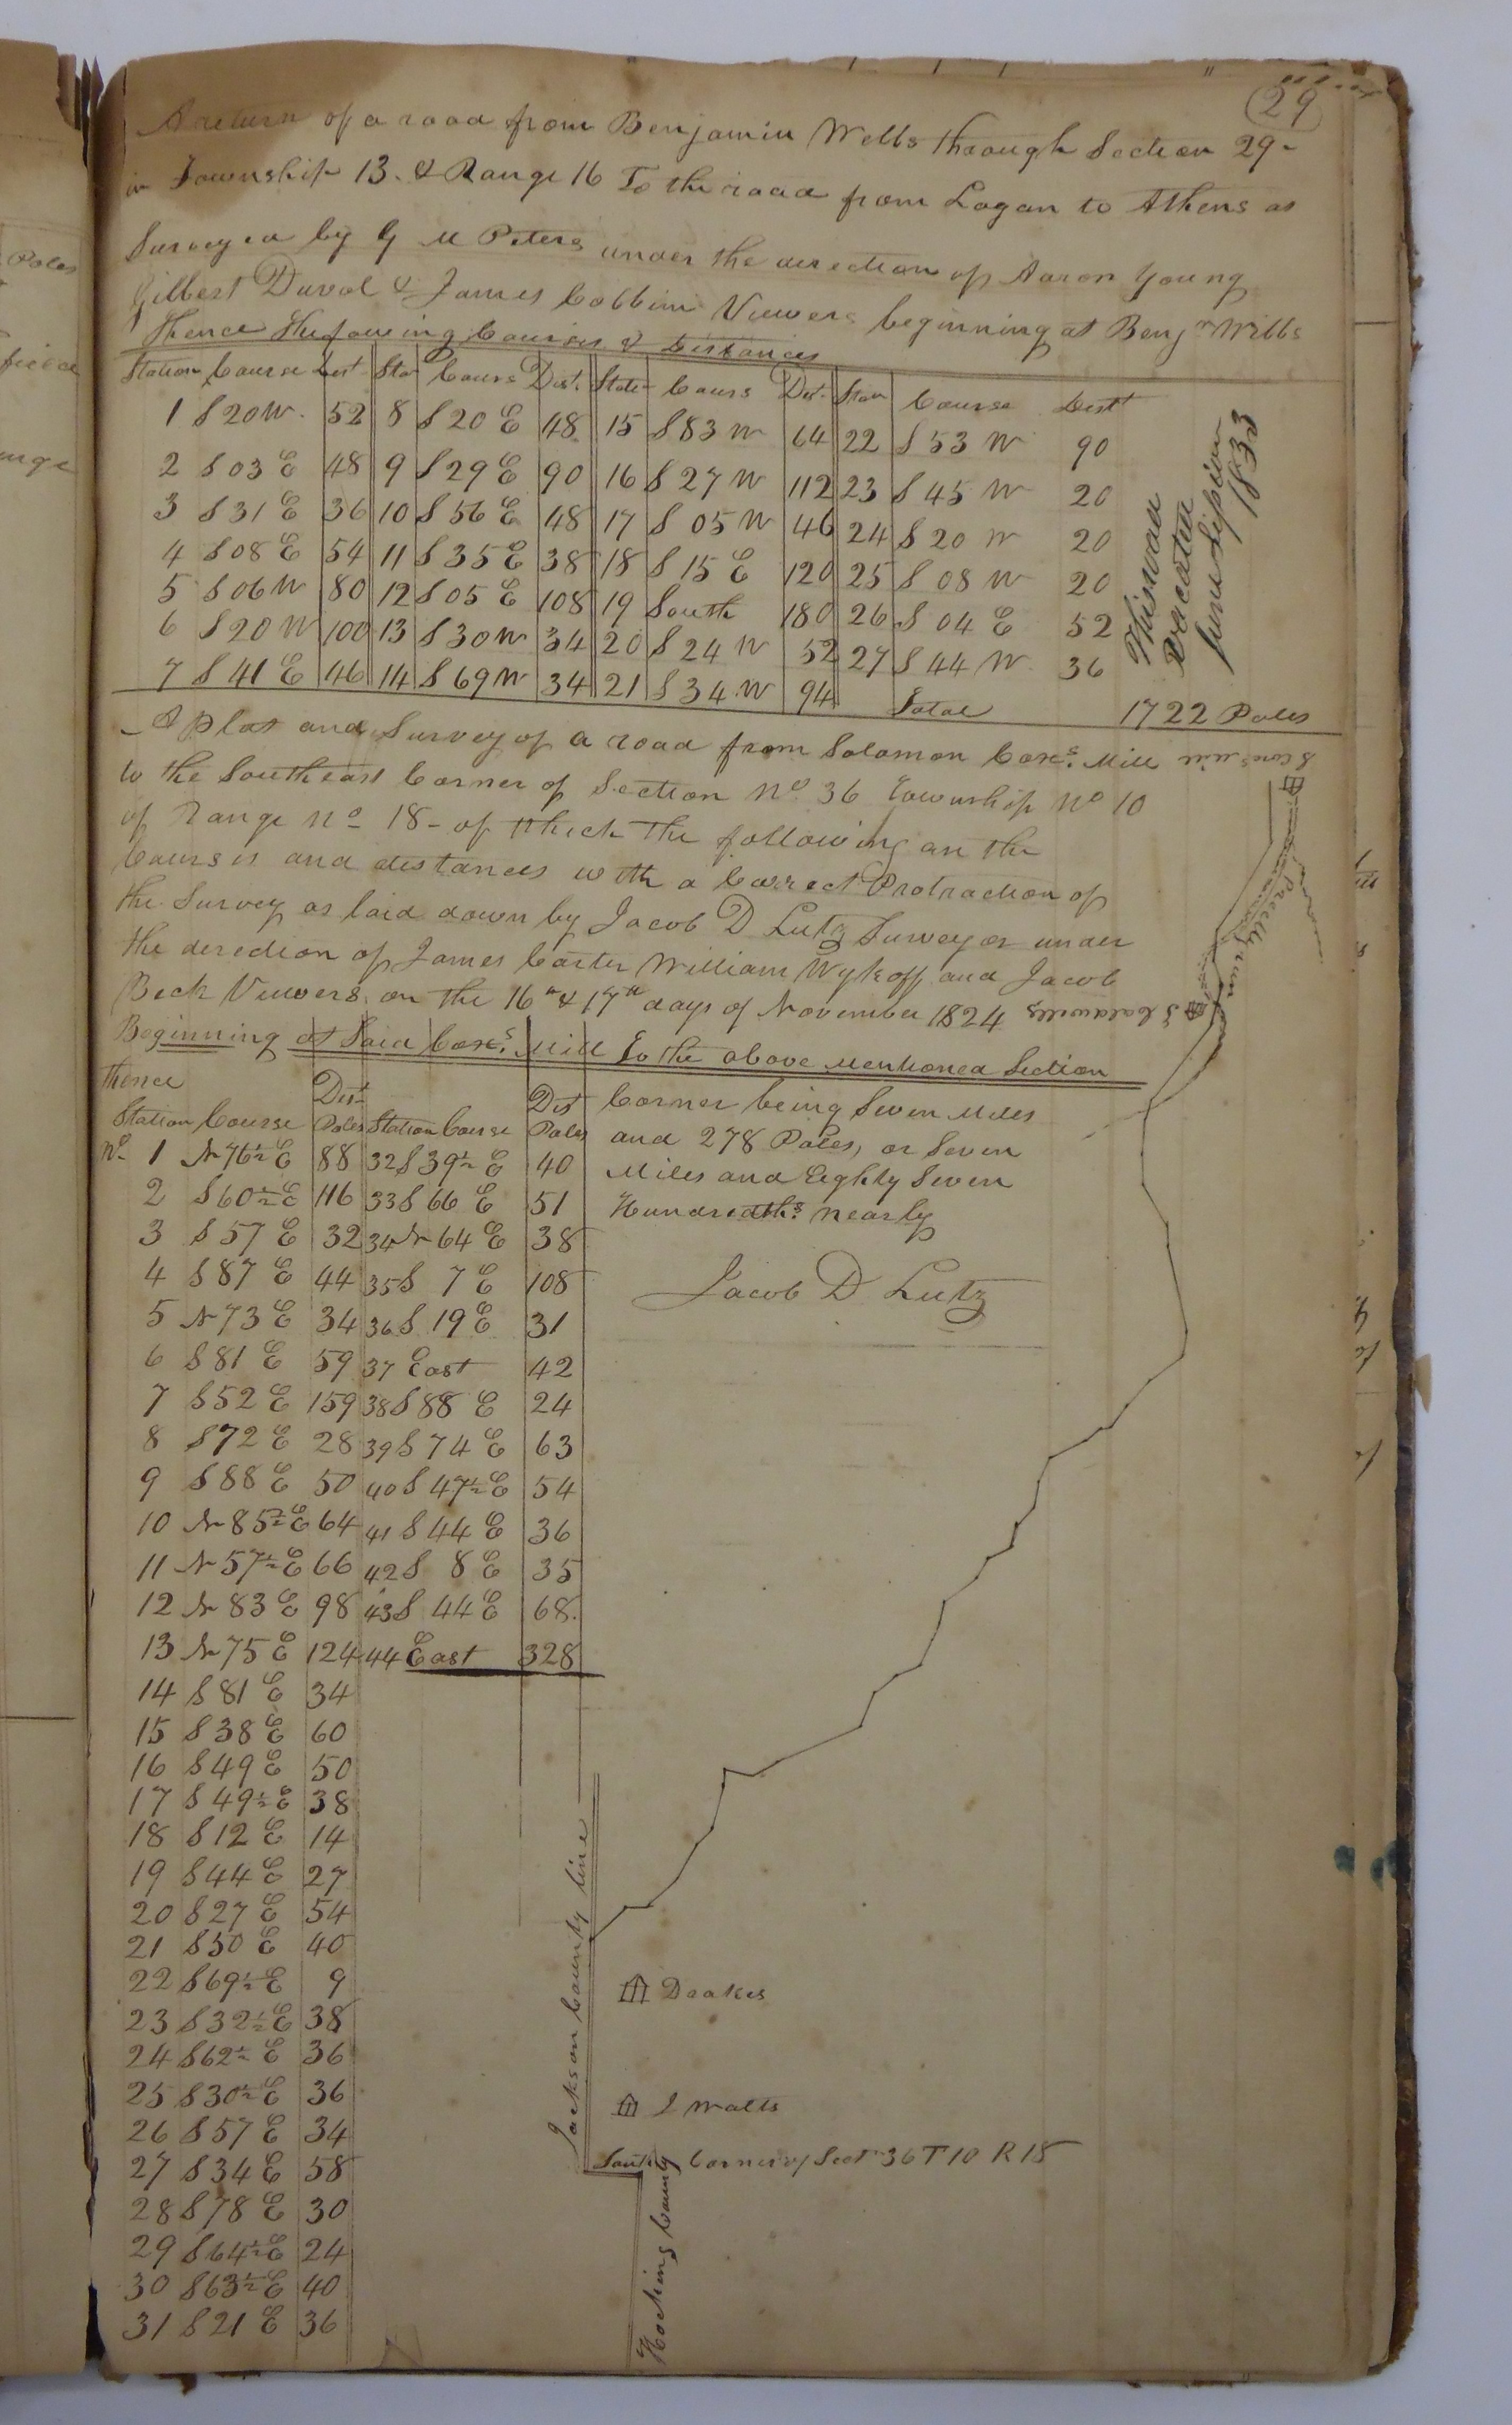 29
A return of a road from Benjamin Wells through Section 29-
in Township 13. & Range 16 To the road from Logan to Athens as
Surveyed by G M Peters under the direction of Aaron Young
Gilbert Duval & James Viewers beginning at Benjn Wells
Thence the Courses & Distances
Station Course Dist Sta Cours Dist. Stati Cours Dist. Stan Course Distt
1 S 20 W. 52 8 S 20 E 48 15 S 83 W 64 22 S 53 W 90
2 S 03 E 48 9 S 29 E 90 16 S 27 W 112 23 S 45 W 20
3 S 31 E 36 10 S 56 E 48 17 S 05 W 46 24 S 20 W 20
4 S 08 E 54 11 S 35 E 38 18 S 15 E 120 25 S 08 W 20
5 S 06 W 80 12 S 05 E 108 19 South 180 26 S 04 E 52
6 S 20 W 100 13 S 30 W 34 20 S 24 W 52 27 S 44 W. 36
7 S 41 E 46 14 S 69 W 34 21 S 34 W 94 Total 1722 Poles
This road
Vacated
June Session
1833
A Plat and Survey of a road from Solomon Coxs. Mill
to the Southeast Corner of Section No. 36 Township No 10
of Range No - 18 - of which the following are the
Courses and distances with a Correct Protraction of
the Survey as laid down by Jacob D Lutz Surveyor under
the direction of James Carter William Wykoff and Jacob
Beck Viewers on the 16th & 17th days of November 1824
Beginning at Said Coxs. Mill To the above mentioned Section
Corner being Seven Miles
and 278 Poles, or Seven
Miles and Eighty Seven
Hundredths. nearly
Jacob D Lutz
Thence
Station Course Dist Poles Station Course Dist Poles
No. 1 N 76½ E 88 32 S 39½ E 40
2 S 60½ E 116 33 S 66 E 51
3 S 57 E 32 34 N 64 E 38
4 S 87 E 44 35 S 7 E 108
5 N 73 E 34 36 S 19 E 31
6 S 81 E 59 37 East 42
7 S 52 E 159 38 S 88 E 24
8 S 72 E 28 39 S 74 E 63
9 S 88 E 50 40 S 47½ E 54
10 N 85½ E 64 41 S 44 E 36
11 N 57½ E 66 42 S 8 E 35
12 N 83 E 98 43 S 44 E 68.
13 N 75 E 124 44 East 328
14 S 81 E 34
15 S 38 E 60
16 S 49 E 50
17 S 49½ E 38
18 S 12 E 14
19 S 44 E 27
20 S 27 E 54
21 S 50 E 40
22 S 69½ E 9
23 S 32½ E 38
24 S 62½ E 36
25 S 30½ E 36
26 S 57 E 34
27 S 34 E 58
28 S 78 E 30
29 S 64½ E 24
30 S 63½ E 40
31 S 21 E 36
S Coxs mill
run
Jackson County line
Drakes
J Walts
Corner of Sect 36 T 10 R 18
Hocking County
Poles